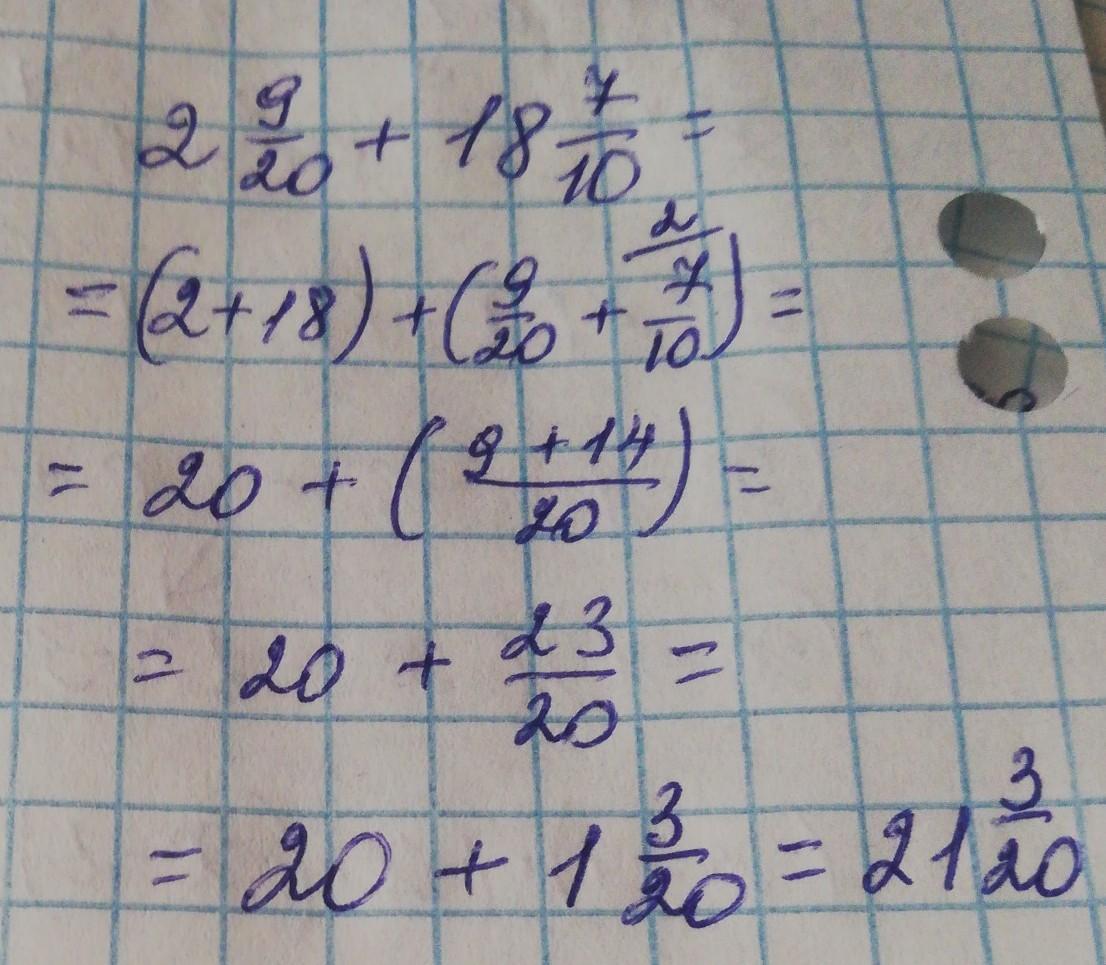 2 9/20 + 18 7/10 =
= (2+18) + (9/20 + 2/ 7/10) =
= 20 + (9+14/20) =
= 20 + 23/20 =
= 20 + 1 3/20 = 21 3/20